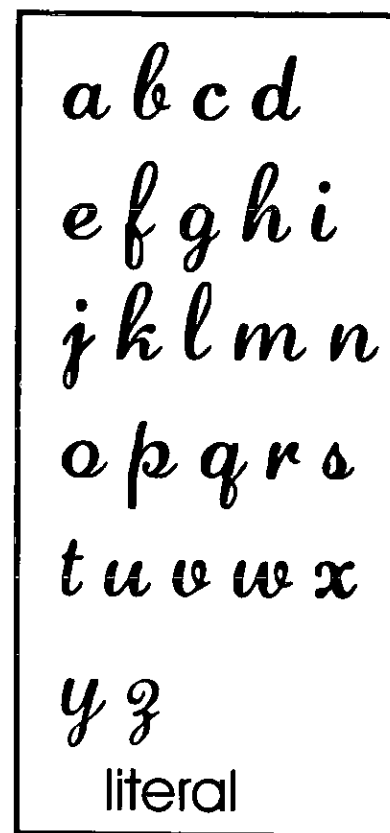 a b c d
e f g h i
j k l m n
o p q r s
t u v w x
y z
literal